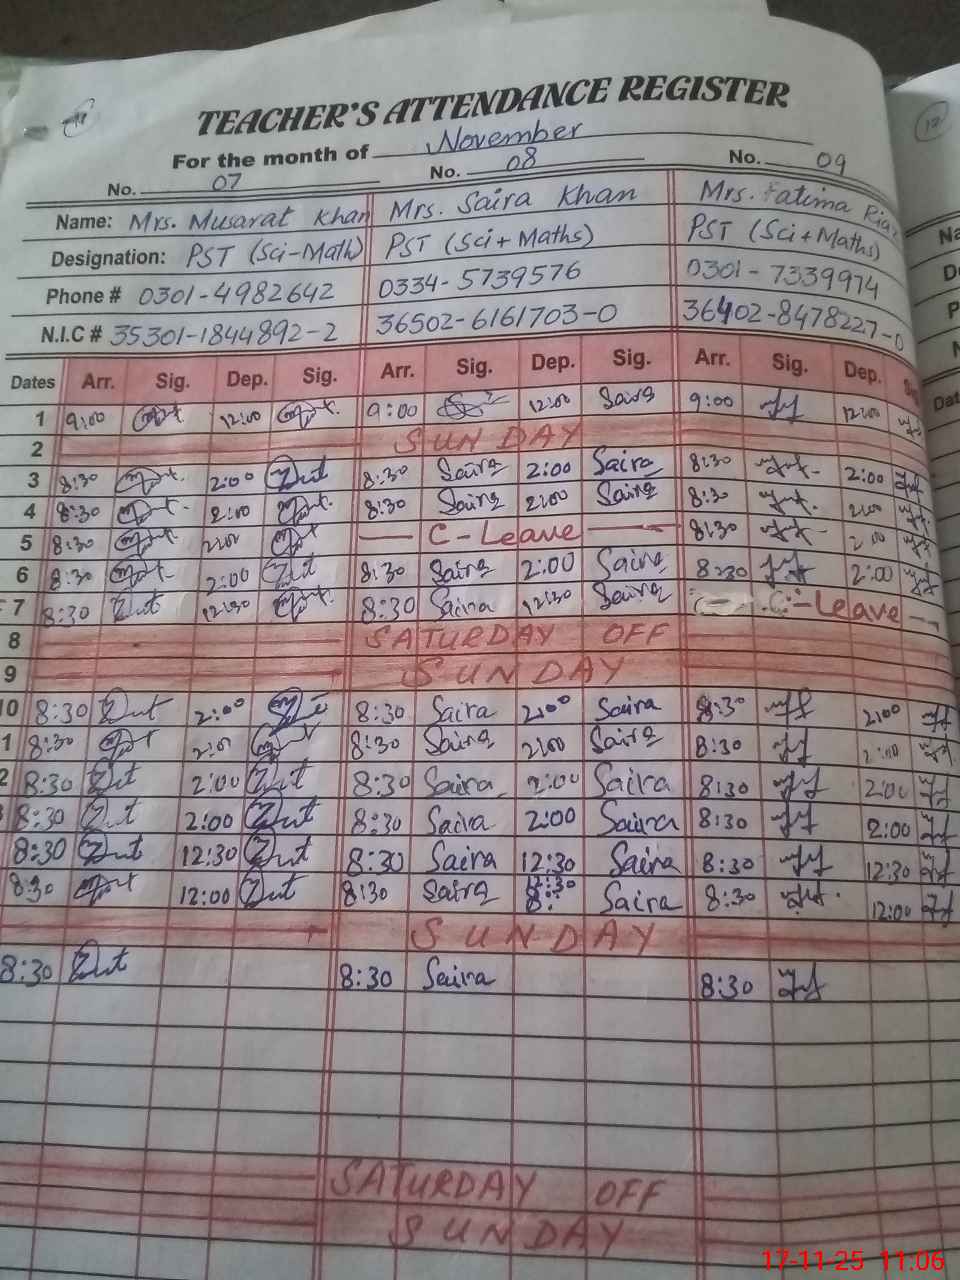 TEACHER'S ATTENDANCE REGISTER
For the month of November
No. 07 No. 08 No. 09
Name: Mrs. Musarat Khan Mrs. Saira Khan Mrs. Fatima Riaz
Designation: PST (Sci-Math) PST (Sci + Maths) PST (Sci + Maths)
Phone # 0301-4982642 0334-5739576 0301-7339974
N.I.C # 35301-1844892-2 36502-6161703-0 36402-8478227-0
Dates Arr. Sig. Dep. Sig. Arr. Sig. Dep. Sig. Arr. Sig. Dep.
1 9:00 12:00 9:00 12:00 Saira 9:00 12:00
2 SUNDAY
3 8:30 2:00 8:30 Saira 2:00 Saira 8:30 2:00
4 8:30 2:00 8:30 Saira 2:00 Saira 8:30 2:00
5 8:30 2:00 C-Leave 8:30 2:00
6 8:30 2:00 8:30 Saira 2:00 Saira 8:30 2:00
7 8:30 12:30 8:30 Saira 12:30 Saira C-Leave
8 SATURDAY OFF
9 SUNDAY
10 8:30 2:00 8:30 Saira 2:00 Saira 8:30 2:00
1 8:30 2:00 8:30 Saira 2:00 Saira 8:30 2:00
2 8:30 2:00 8:30 Saira 2:00 Saira 8:30 2:00
8:30 2:00 8:30 Saira 2:00 Saira 8:30 2:00
8:30 12:30 8:30 Saira 12:30 Saira 8:30 12:30
8:30 12:00 8:30 Saira Saira 8:30 12:00
SUNDAY
8:30 8:30 Saira 8:30
SATURDAY OFF
SUNDAY
17-11-25 11:06